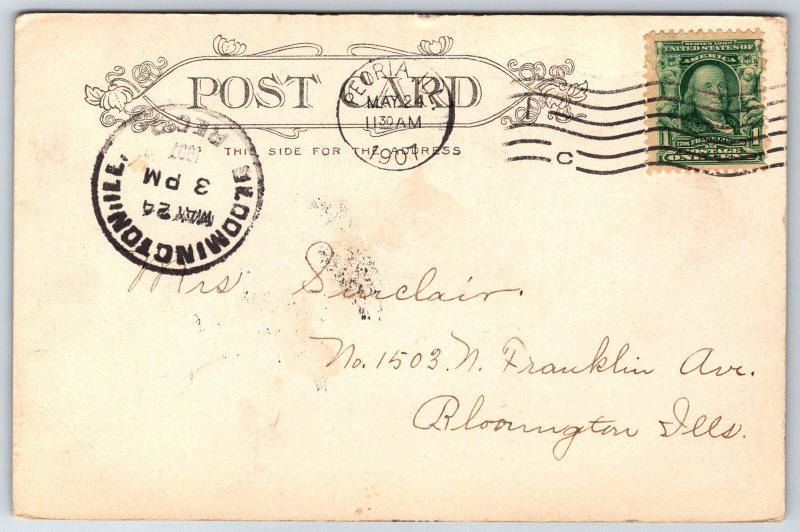 POST CARD
THIS SIDE FOR THE ADDRESS
PEORIA, ILL.
MAY 24
11 30 AM
1907
C
SERIES 1902
UNITED STATES OF
AMERICA
1706 FRANKLIN 1790
1 1
POSTAGE
ONE CENT
BLOOMINGTON, ILL.
MAY 24
3 PM
1907
REC'D
Mrs. Sinclair.
No. 1503. N. Franklin Ave.
Bloomington Ills.